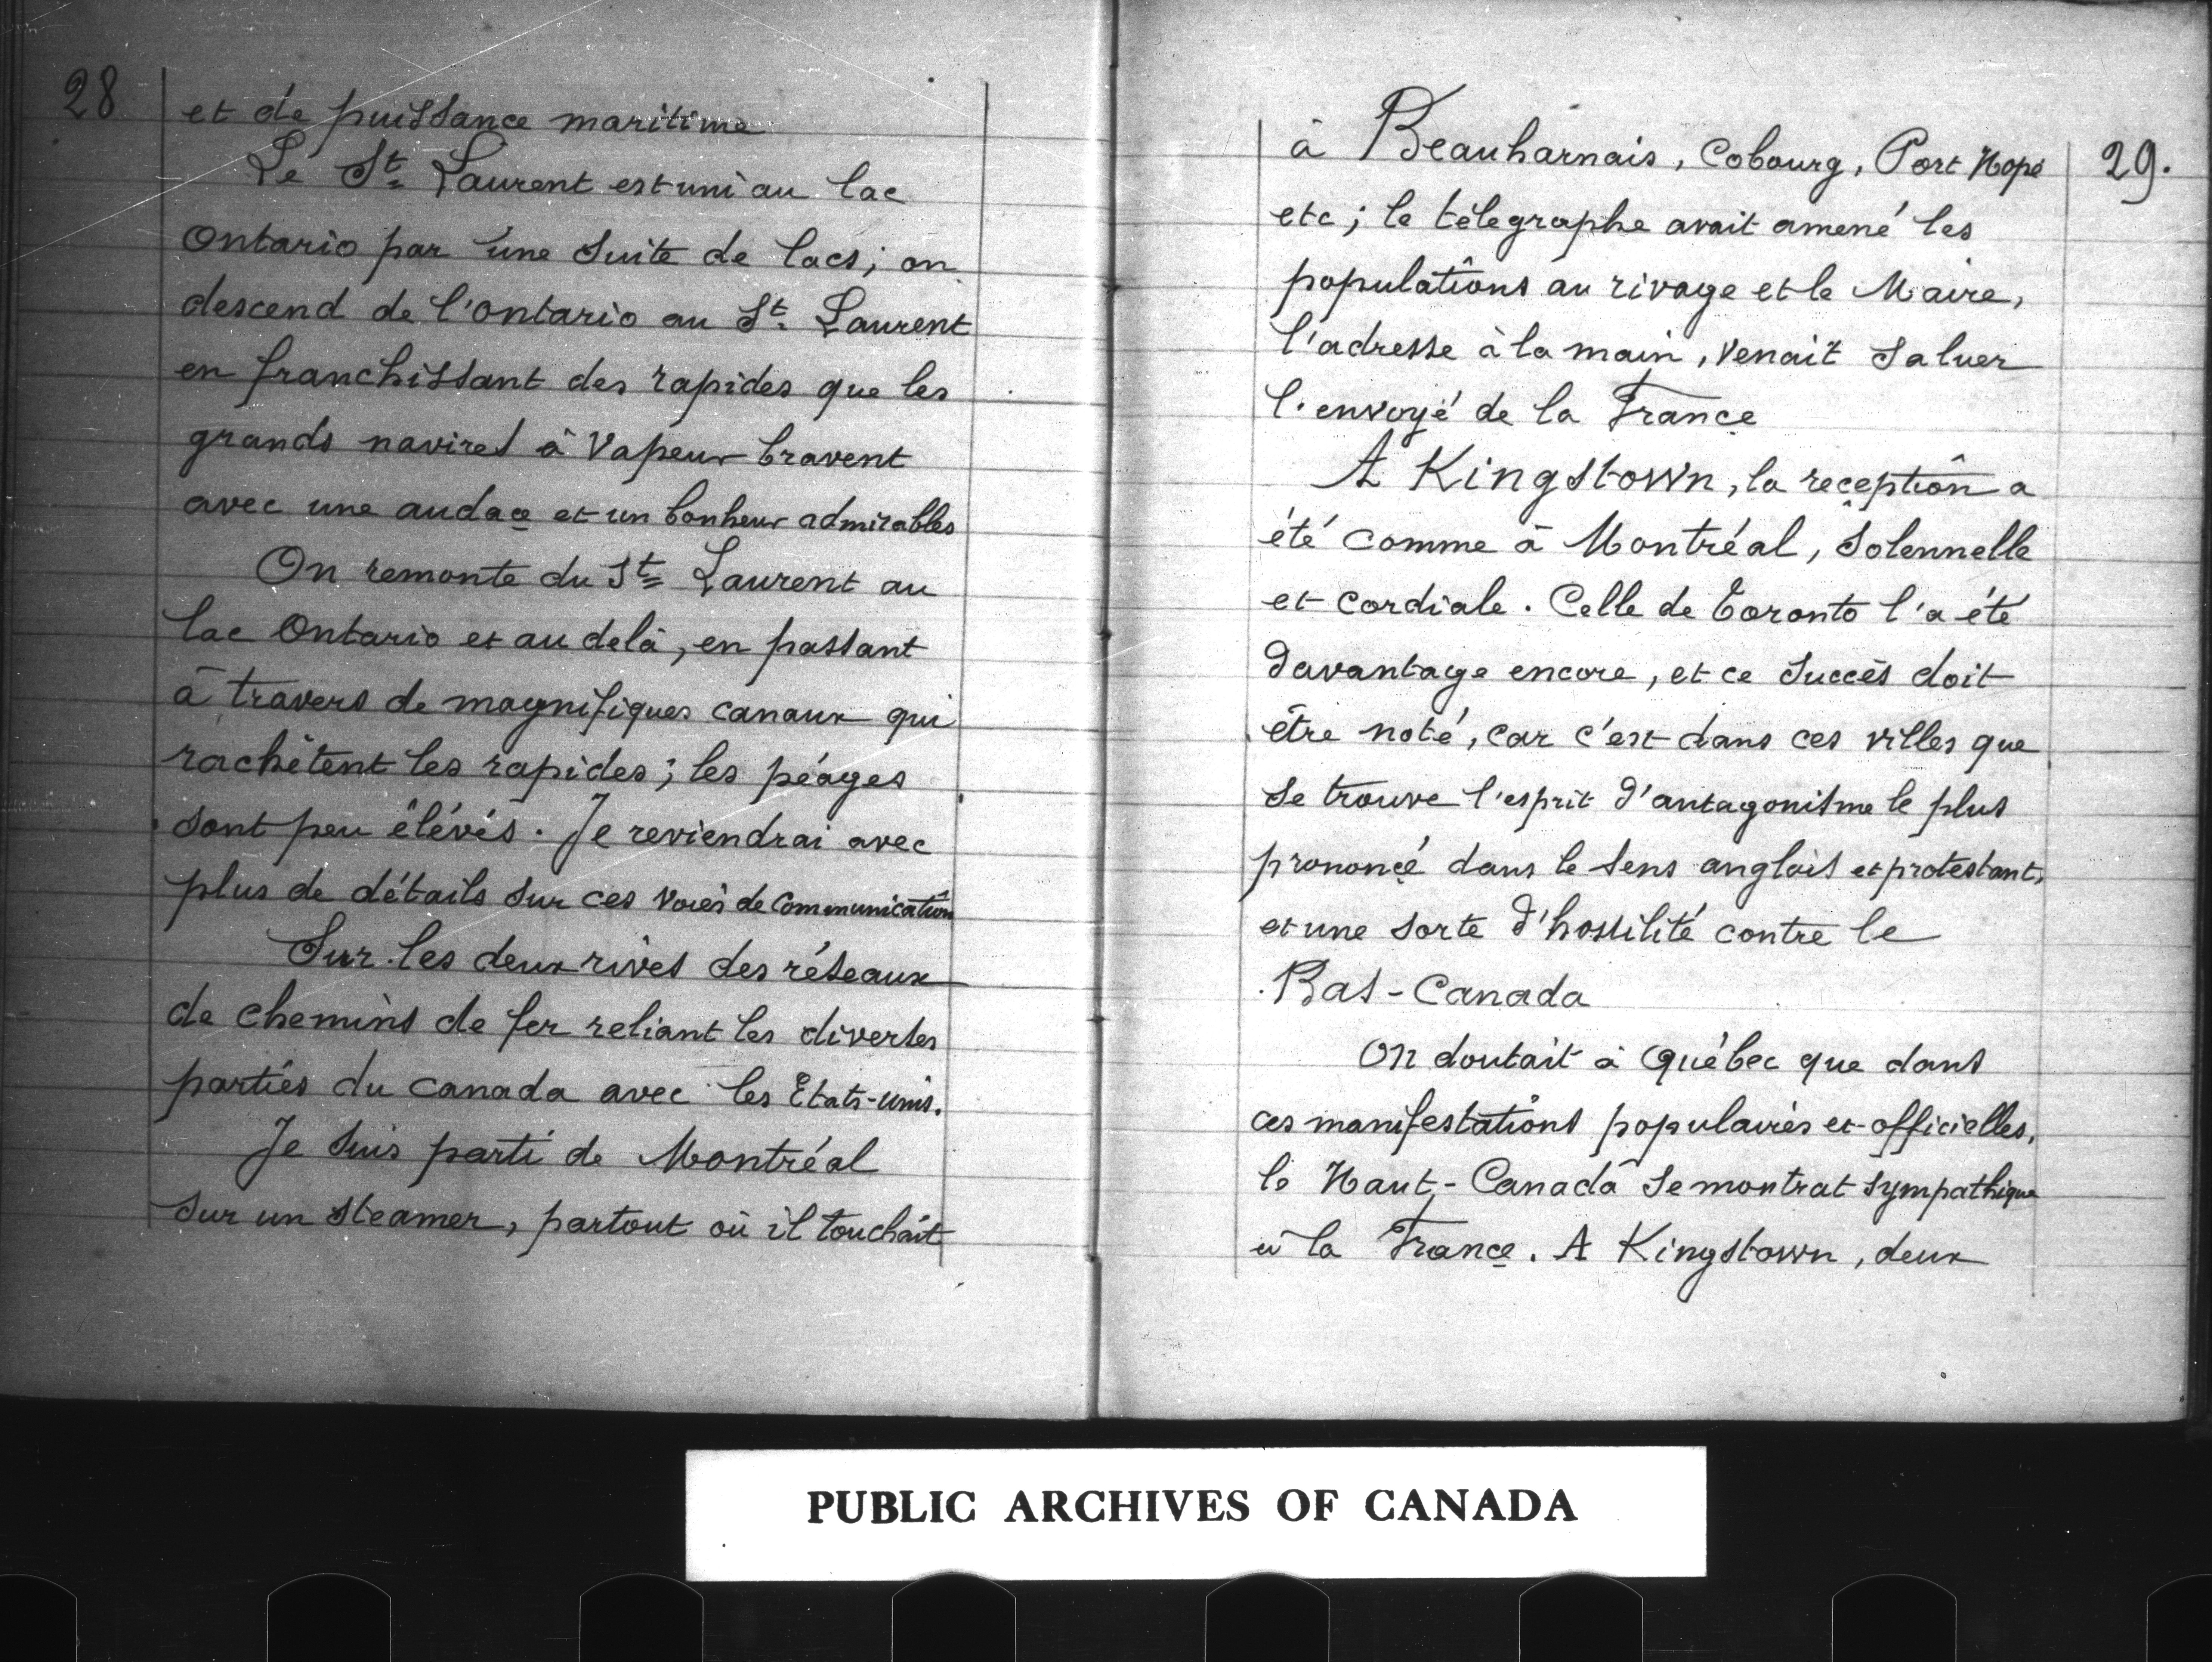 28
et de puissance maritime
Le St. Laurent est uni au lac
Ontario par une suite de lacs; on
descend de l'Ontario au St. Laurent
en franchissant des rapides que les
grands navires à vapeur bravent
avec une audace et un bonheur admirables
On remonte du St. Laurent au
lac Ontario et au delà, en passant
à travers de magnifiques canaux qui
rachêtent les rapides; les péages
sont peu élévés. Je reviendrai avec
plus de détails sur ces voies de communication
Sur les deux rives des réseaux
de chemins de fer reliant les diverses
parties du Canada avec les Etats-unis.
Je suis parti de Montréal
sur un steamer, partout où il touchait
29.
à Beauharnais, Cobourg, Port Hope
etc; le télegraphe avait amené les
populations au rivage et le Maire,
l'adresse à la main, venait saluer
l'envoyé de la France
A Kingstown, la reception a
été comme à Montréal, solennelle
et cordiale. Celle de Toronto l'a été
davantage encore, et ce succès doit
être noté, car c'est dans ces villes que
se trouve l'esprit d'antagonisme le plus
prononcé dans le sens anglais et protestant,
et une sorte d'hostilité contre le
Bas-Canada
On doutait à Québec que dans
ces manifestations populaires et officielles,
le Haut-Canada se montrat sympathique
à la France. A Kingstown, deux
PUBLIC ARCHIVES OF CANADA